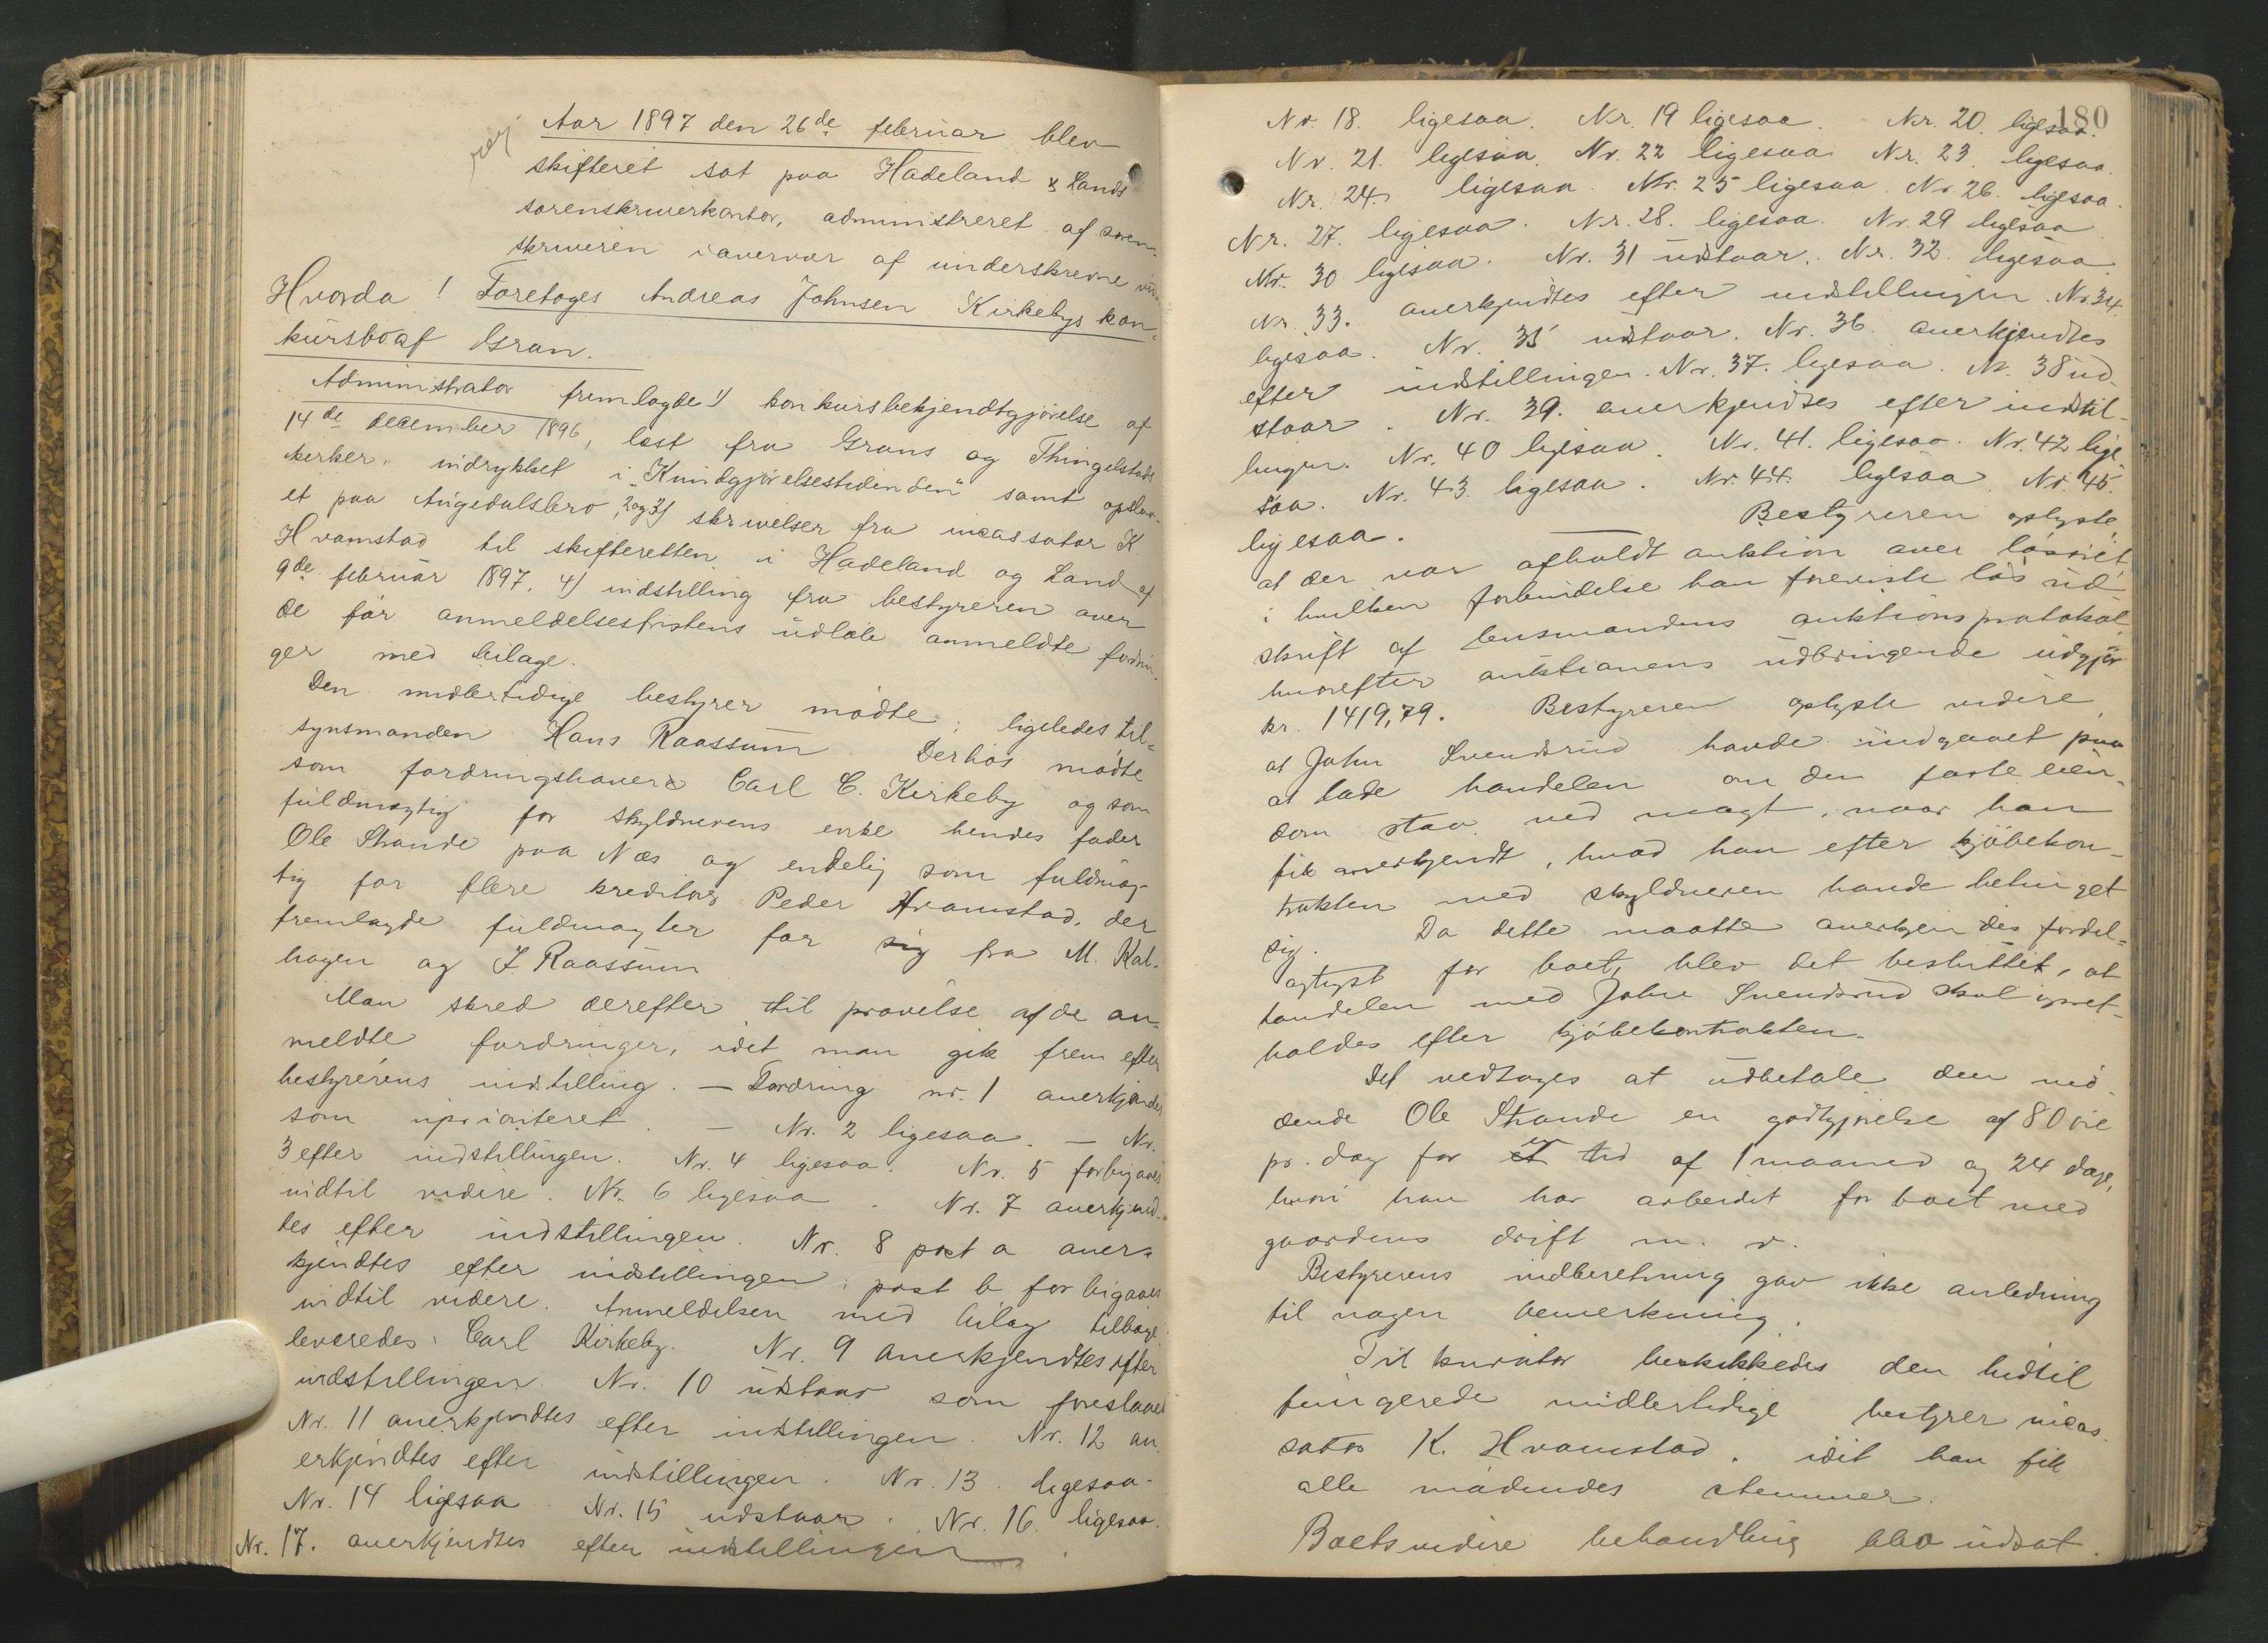 rej
Aar 1897 den 26de februar blev
skifteret sat paa Hadeland & Lands
sorenskriverkontor, administreret af soren-
skriveren i overvær af underskrevne vidn
Hvorda! Foretoges Andreas Johnsen Kirkebys kon-
kursbo af Gran.
Administrator fremlagde 1) konkursbekjendtgjørelse af
14de december 1896, læst fra Grans og Thingelstads
kirker, indrykket i "Kundgjørelsestidenden" samt opslaa-
et paa Augedalsbro, 2 og 3) skrivelser fra incassator K.
Hvamstad til skifteretten i Hadeland og Land af
9de februar 1897, 4) indstilling fra bestyreren over
de før anmeldelsesfristens udløb anmeldte fordrin-
ger med bilage.
Den midlertidige bestyrer mødte; ligeledes til-
synsmanden Hans Raassum. Derhos mødte
som fordringshaver Carl C. Kirkeby og som
fuldmægtig for skyldnerens enke hendes fader
Ole Strande paa Næs og endelig som fuldmæg-
tig for flere kreditor Peder Hvamstad, der
fremlagde fuldmagter for sig fra M. Kal-
hagen og J. Raassum
Man skred derefter til prøvelse af de an-
meldte fordringer, idet man gik frem efter
bestyrerens indstilling. — Fordring nr. 1 anerkjendes
som uprioriteret. — Nr. 2 ligesaa. — Nr.
3 efter indstillingen. Nr. 4 ligesaa. Nr. 5 forbigaaes
indtil videre. Nr. 6 ligesaa. Nr. 7 anerkjend-
tes efter indstillingen. Nr. 8 post a aner-
kjendtes efter indstillingen; post b forbigaaes
indtil videre. Anmeldelsen med bilag tilbage
leveredes Carl Kirkeby. Nr. 9 anerkjendtes efter
indstillingen. Nr. 10 udstaar som foreslaaet
Nr. 11 anerkjendtes efter indstillingen. Nr. 12 an
erkjendtes efter indstillingen. Nr. 13. ligesaa.
Nr. 14 ligesaa. Nr. 15 udstaar. Nr. 16. ligesaa.
Nr. 17. anerkjendtes efter indstillingen.
180
Nr. 18. ligesaa. Nr. 19 ligesaa. Nr. 20. ligesaa.
Nr. 21. ligesaa. Nr. 22 ligesaa Nr. 23. ligesaa.
Nr. 24. ligesaa. Nr. 25 ligesaa. Nr. 26. ligesaa.
Nr. 27. ligesaa. Nr. 28. ligesaa. Nr. 29 ligesaa.
Nr. 30 ligesaa. Nr. 31 udstaar. Nr. 32. ligesaa.
Nr. 33. anerkjendtes efter indstillingen. Nr. 34.
ligesaa. Nr. 35 udstaar. Nr. 36. anerkjendtes
efter indstillingen. Nr. 37. ligesaa. Nr. 38 ud-
staar. Nr. 39. anerkjendtes efter indstil-
lingen. Nr. 40 ligesaa. Nr. 41. ligesaa. Nr. 42 lige
saa. Nr. 43. ligesaa. Nr. 44. ligesaa Nr. 45.
ligesaa. — Bestyreren oplyste,
at der var afholdt auktion over løsøret,
i hvilken forbindelse han foreviste løs ud
skrift af lensmandens auktionsprotokol,
hvorefter auktionens udbringende udgjør
kr. 1419,79. Bestyreren oplyste videre,
at John Svendsrud havde indgaaet paa
at lade handelen om den faste eien-
dom staa ved magt, naar han
fik anerkjendt, hvad han efter kjøbekon-
trakten med skyldneren havde betinget
sig. Da dette maatte anerkjendes fordel-
agtigst for boet, blev det besluttet, at
handelen med John Svendsrud skal opret-
holdes efter kjøbekontrakten.
Det vedtages at udbetale den mø-
dende Ole Strande en godtgjørelse af 80 øre
pr. dag for en tid af 1 maaned og 24 dage,
hvori han har arbeidet for boet med
gaardens drift m. v.
Bestyrerens indberetning gav ikke anledning
til nogen bemerkning.
Til kurator beskikkedes den hidtil
fungerede midlertidige bestyrer incas-
sator K. Hvamstad, idet han fik
alle mødendes stemmer.
Boets videre behandling blev udsat.